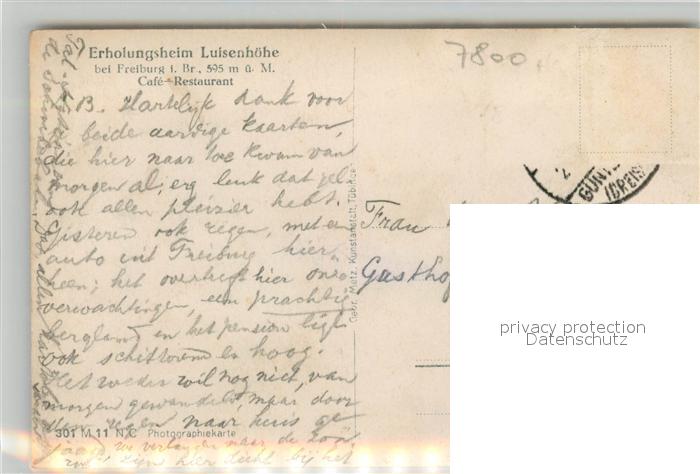 Erholungsheim Luisenhöhe
bei Freiburg i. Br., 595 m ü. M.
Café-Restaurant
7800
L.B. Hartelijk dank voor
beide aardige kaarten,
die hier naar toe kwam van
morgen al, erg leuk dat jel
ook allen pleizier hebt.
Gisteren ook regen, met een
auto uit Freiburg hier
heen; het overtreft hier onze
verwachtingen, een prachtig
bergland en het pension ligt
ook schitterend en hoog.
Het weder wil nog niet, van
morgen gewandeld, maar door
den regen naar huis ge
jaagd, we verlangen naar de zon
zijn hier dicht bij het
Gebr. Metz, Kunstanstalt, Tübingen
Frau
Gasthof
GÜNT
(BREIS
301 M 11 N/C Photographiekarte
privacy protection
Datenschutz